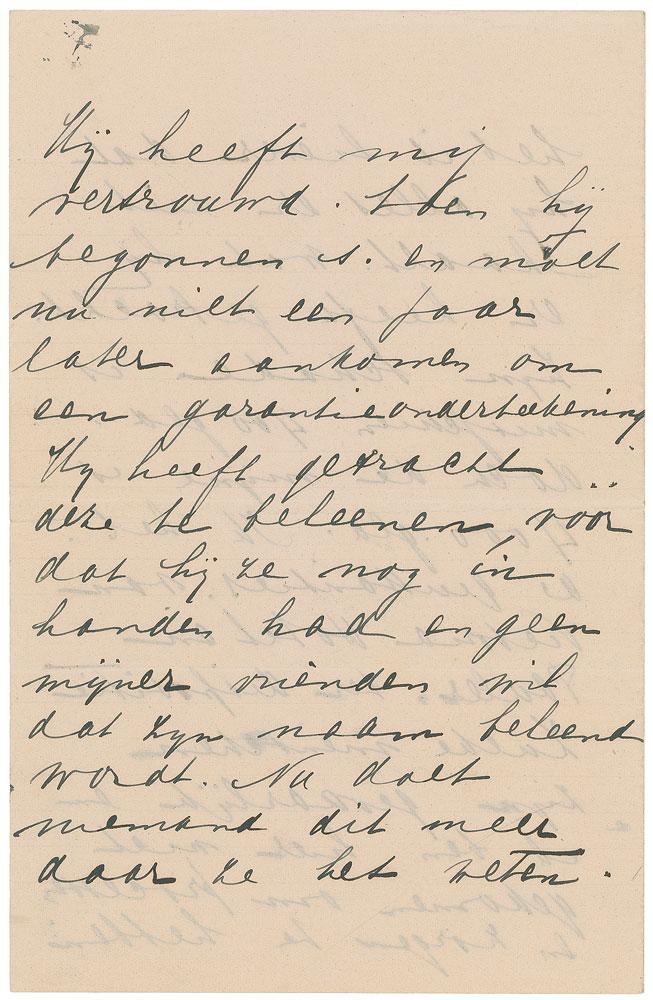 Hij heeft mij
vertrouwd. toen hij
begonnen is. en moet
nu niet een jaar
later aankomen om
een garantieonderteekening
Hij heeft getracht
deze te beleenen, vóór
dat hij ze nog in
handen had en geen
mijner vrienden wil
dat zijn naam beleend
wordt. Nu doet
niemand dit meer
daar ze het weten.